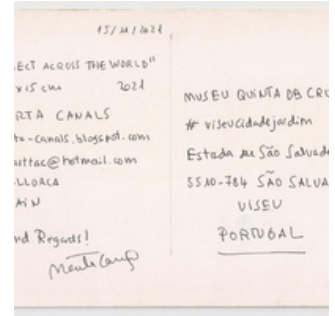 15/11/2021
ECT ACROSS THE WORLD"
x15 cm 2021
RTA CANALS
ta-canals.blogspot.com
@hotmail.com
LLORCA
AIN
nd Regards!
MUSEU QUINTA DA CRU
# viseucidadejardim
Estada de São Salvado
5510-784 SÃO SALVA
VISEU
PORTUGAL